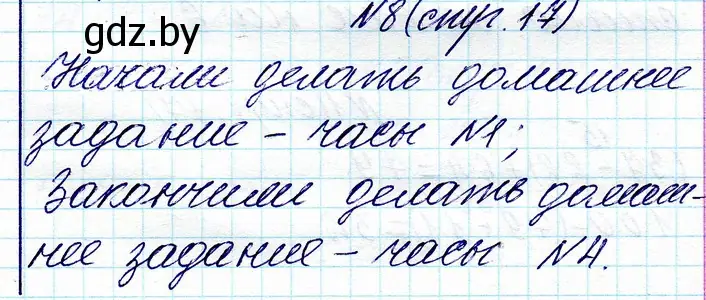 №8 (стр. 17)
gdz.by
Начали делать домашнее
задание – часы №1;
Закончили делать домаш-
нее задание – часы №4.